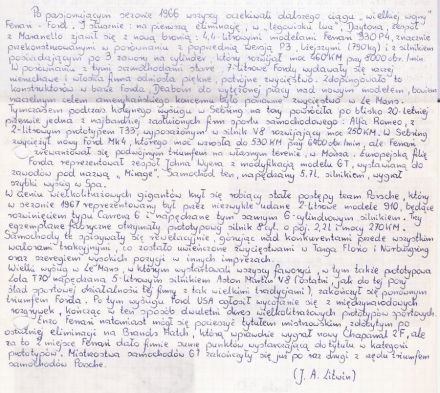 Po pasjonującym sezonie 1966 wszyscy oczekiwali dalszego ciągu „wielkiej wojny"
Ferrari - Ford. I słusznie : na pierwszą eliminację, w „legowisku lwa" Daytona, zespół
z Maranello zjawił się z nową bronią : 4,4-litrowymi modelami Ferrari 330P4, znacznie
przekonstruowanymi w porównaniu z poprzednią wersją P3, lżejszymi (790kg) i z silnikiem
posiadającym po 3 zawory na cylinder, który rozwijał moc 460KM przy 8000 obr./min.
W porównaniu z tymi samochodami stare 7-litrowe Fordy wydawały się nawet
nieruchawe i włoska firma odniosła piękne, potrójne zwycięstwo i dopingowało to
konstruktorów w bazie Forda Deabom do wytężonej pracy nad nowym modelem, bowiem
naczelnym celem amerykańskiego koncernu było ponowne zwycięstwo w Le Mans.
Tymczasem podczas kolejnego wyścigu w Sebring na tory powróciła po blisko 20-letniej
przerwie jedna z najbardziej zasłużonych firm sportu samochodowego : Alfa Romeo, z
2-litrowym prototypem T33, wyposażonym w silnik V8 rozwijający moc 250KM. W Sebring
zwyciężył nowy Ford Mk4, którego moc wzrosła do 530KM przy 6400 obr./min, ale Ferrari
zrewanżował się podwójnym triumfem na własnym terenie, w Monza. Europejską filię
Forda reprezentował zespół Johna Wyera z modyfikacją modelu GT, wystawianą do
zawodów pod nazwą „Mirage". Samochód ten, napędzany 5,7L. silnikiem, wygrał
szybki wyścig w Spa.
W cieniu wielkolitrażowych gigantów krył się robiący stałe postępy team Porsche, który
w sezonie 1967 reprezentowany był przez niezwykle udane 2-litrowe modele 910, będące
rozwinięciem typu Carrera 6 i napędzane tym samym 6-cylindrowym silnikiem. Trzy
egzemplarze fabryczne otrzymały prototypowy silnik 8cyl. o poj. 2,2L i mocy 270KM.
Samochody te spisywały się rewelacyjnie, górując nad konkurentami przede wszystkim
walorami trakcyjnymi, co zostało uwieńczone zwycięstwami w Targa Florio i Nürburgring
oraz szeregiem wysokich pozycji w innych imprezach.
Wielki wyścig w Le Mans, w którym wystartowali wszyscy faworyci, w tym także prototypowa
Lola T70 napędzana 5 litrowym silnikiem Aston Martin V8 (ostatni, jak do tej pory
ślad sportowej działalności tej firmy o tak wielkim tradycjami), zakończył się ponownym
triumfem Forda. Po tym wyścigu Ford USA ogłosił wycofanie się z międzynarodowych
rozgrywek, kończąc w ten sposób dwuletni okres wielkolitrażowych prototypów sportowych.
Enzo Ferrari natomiast mógł się poszczycić tytułem mistrzowskim, zdobytym po
ostatniej eliminacji na Brands Hatch, którą wprawdzie wygrał nowy Chaparral 2F, ale
za to 2 miejsce Ferrari dało firmie sumę punktów wystarczającą do tytułu w kategorii
prototypów. Mistrzostwa samochodów GT zakończyły się już po raz drugi z rzędu triumfem
samochodów Porsche.
(J. A. Litwin)